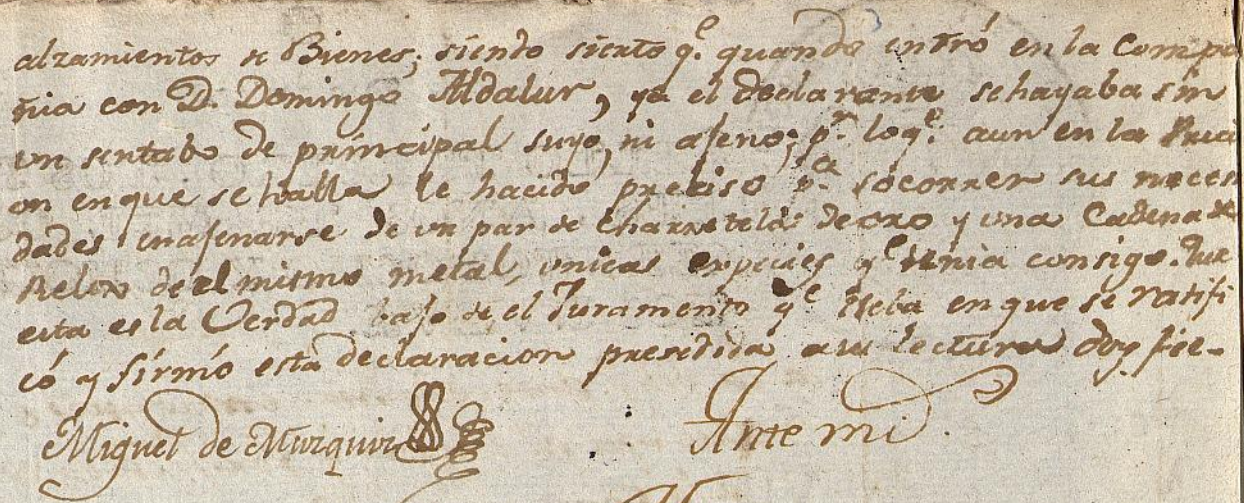 alzamientos de Bienes; siendo sierto qe. quando entró en la Compa
ñia con D. Domingo Aldalur, ya el declarante se hayaba sin
un sentabo de prinsipal suyo, ni ajeno; pr. lo qe. aun en la
on en que se halla le ha cido preciso pa. socorrer sus neces
dades enajenarse de un par de Charreteles de oro y una Cadena de
Relox de el mismo metal, unicas expecies qe. tenia consigo. Que
esta es la Verdad bajo de el Juramento qe lleba en que se ratifi
có y firmó esta declaracion presedida a su lectura doy fee-
Miguel de Murquiz
Ante mi